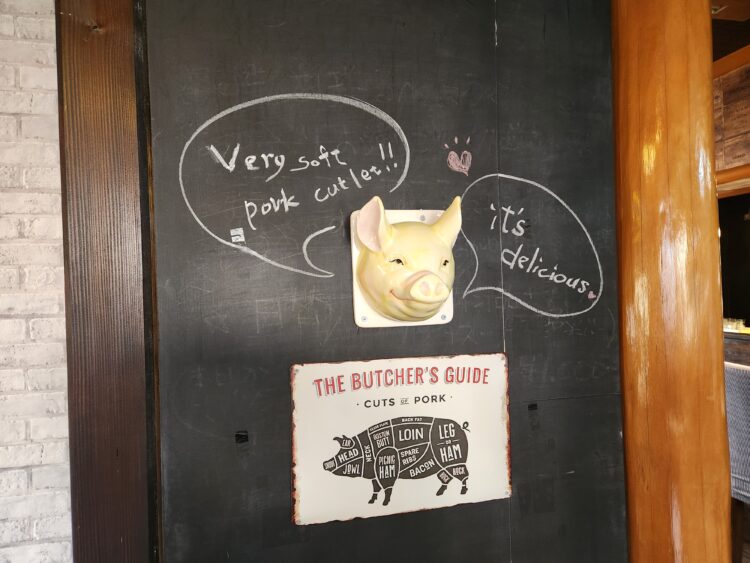 Very soft
pork cutlet!!
it's
delicious
THE BUTCHER'S GUIDE
· CUTS OF PORK ·
EAR
HEAD
SNOUT
JOWL
NECK
BOSTON
BUTT
PICNIC
HAM
BACK FAT
LOIN
SPARE
RIBS
BACON
LEG
OR
HAM
HOCK